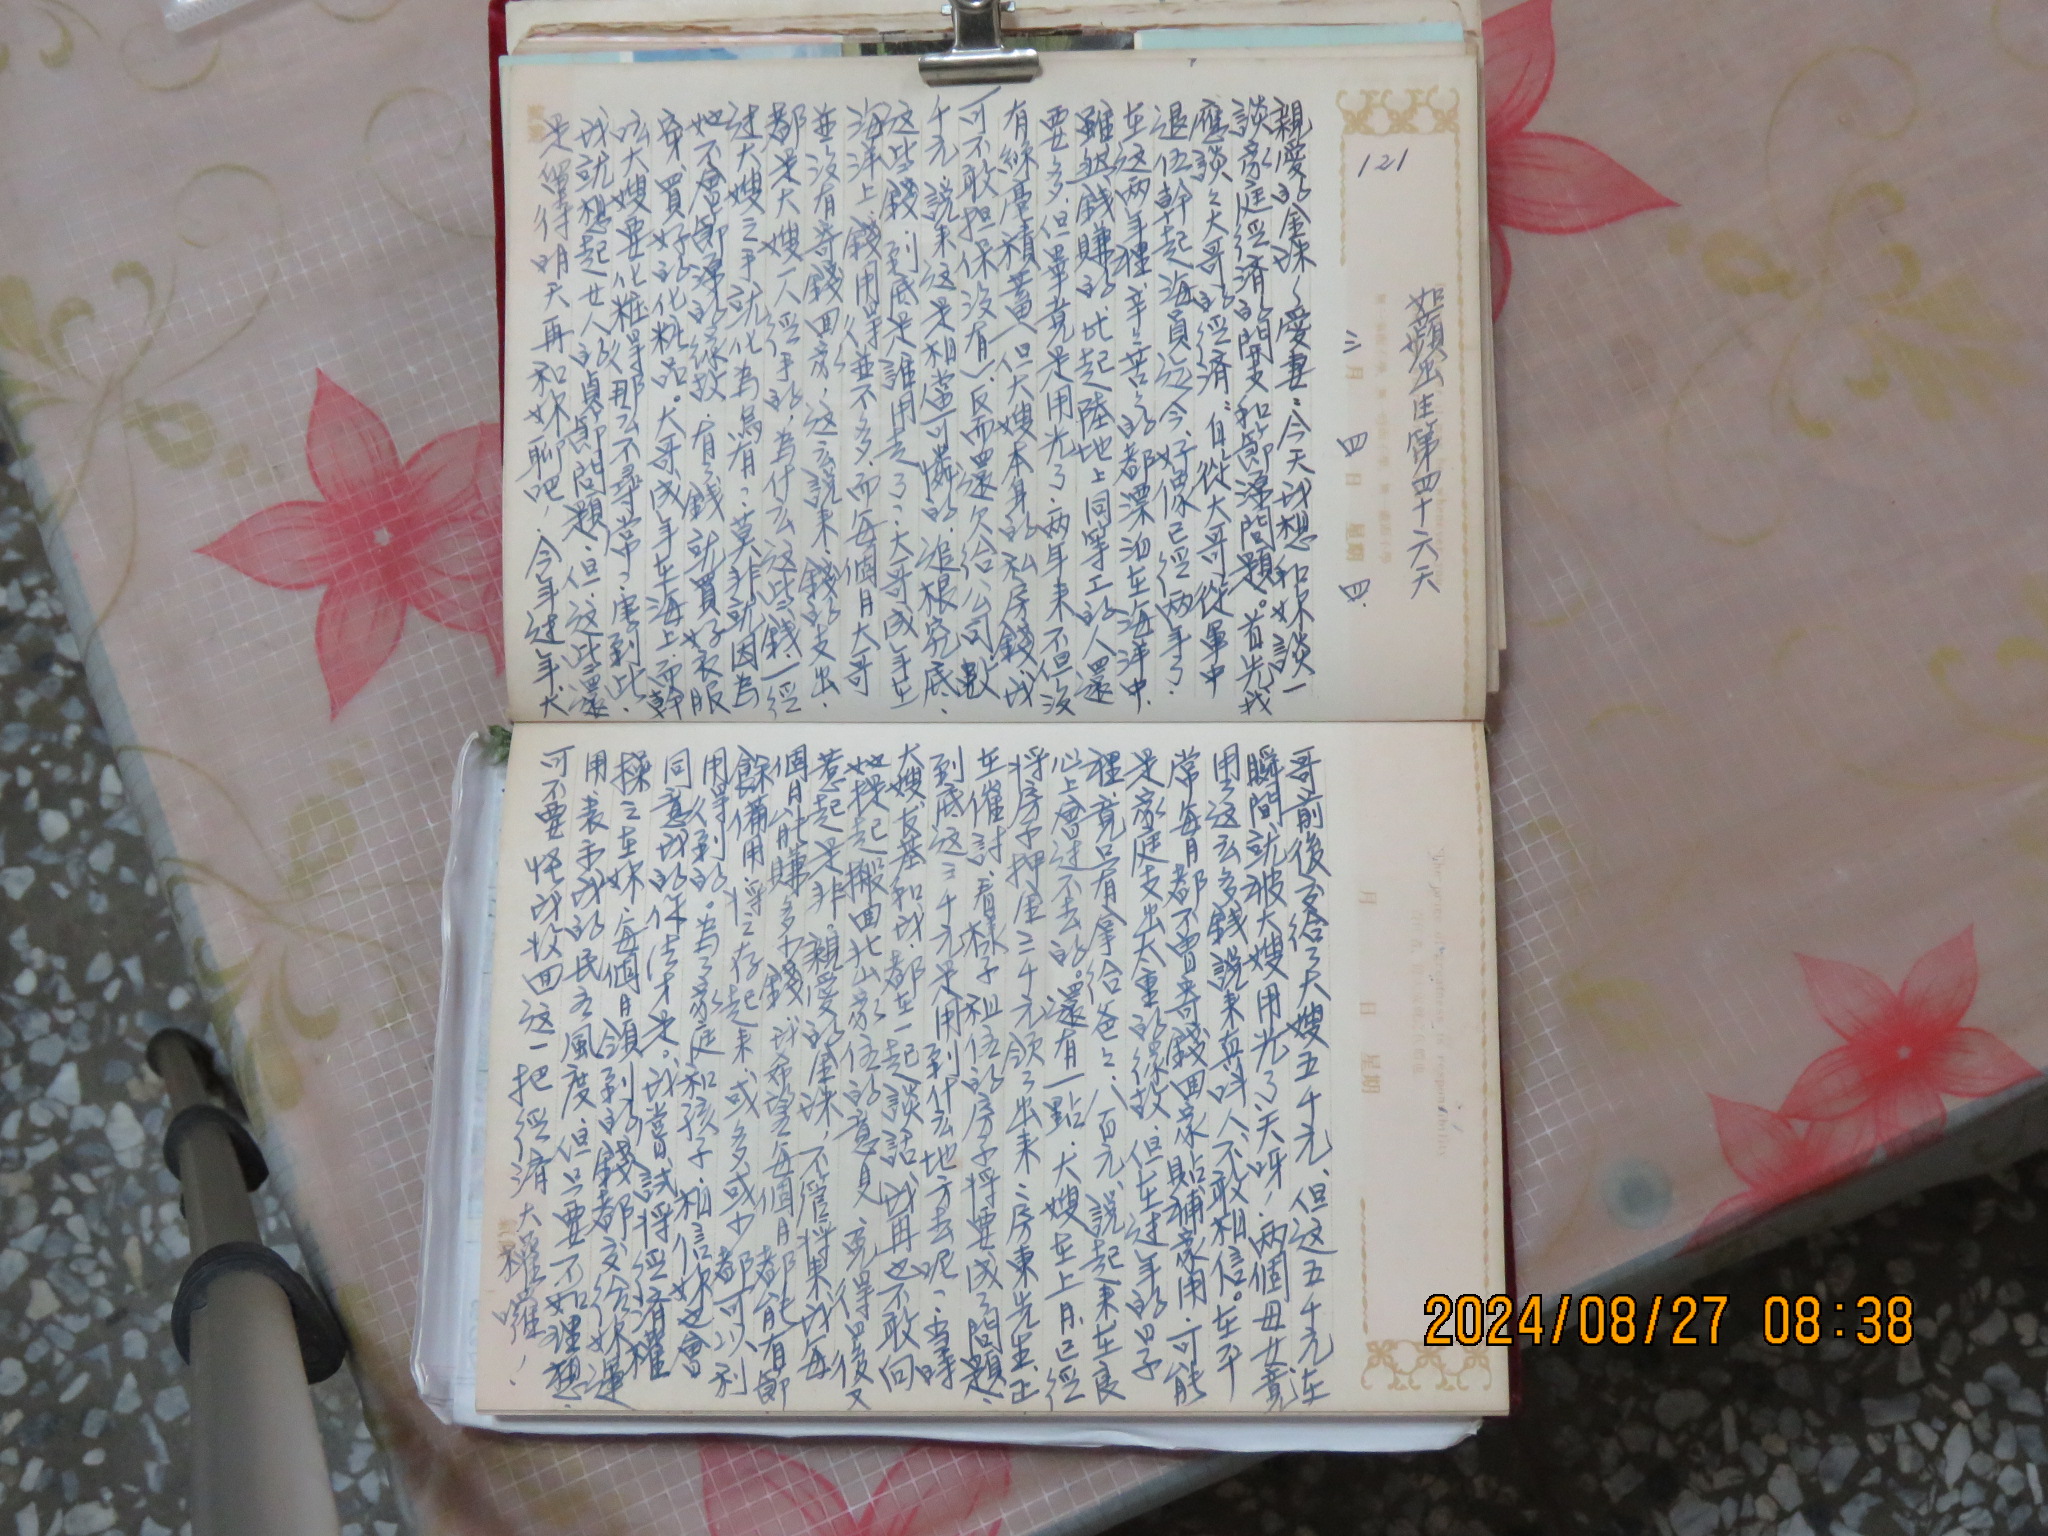 121
如蘋出生第四十六天
三月四日 星期四
親愛的金珠〈愛妻:今天我想和妹談一
談家庭經濟的開支和節源問題。首先我
應談之大哥的經濟:自從大哥從軍中
退伍幹起海員迄今,好像已經兩年了.
在這两年裡,辛辛苦苦的都漂泊在海洋中.
雖然錢賺的比起陸地上同等工的人還
要多,但畢竟是用光了.两年來不但沒
有絲毫積蓄(但大嫂本身的私房錢,我
可不敢担保沒有)反而還欠给公司數
千元,說來这是相當可憐的.追根究底.
这些錢到底是誰用走了?大哥成年在
海洋上,錢用得並不多,而每個月大哥
並沒有寄錢回家,这么說來,錢的支出.
都是大嫂一人經手的,為什么这些錢一經
过大嫂之手就化為烏有?莫非就因為
她不會節源的緣故.有了錢就買好衣服
穿,買好的化粧品。大哥成年在海上而幹
吆大嫂要化粧得那么不尋常?害到此.
我就想起女人的貞節問題,但,这些還
是留待明天再和妹聊吧!今年过年大
哥前後交给了大嫂五千元,但这五千元在
瞬間就被大嫂用光了,天呀!两個母女竟
用这么多錢,說來真叫人不敢相信。在平
常每月都不曾寄錢回家貼補家用.可能
是家庭支出太重的緣故,但在过年的日子
裡,竟只有拿给爸爸八百元,說起來在良
心上會过不去的。還有一點.大嫂在上月已經
将房子押金三千元領了出來,房東先生正
在催討,看樣子租伍的房子将要成了問題.
到底这三千元是用到什么地方去呢?當時
大嫂,友基和我都在一起談話,我再也不敢向
她提起搬回北山家伍的意見,免得日後又
惹起是非。親愛的金珠,不管将來我每
個月能賺多少錢,我希望每個月都能有節
餘備用,将之存起來,或多或少,都可以利
用得到的。為了家庭和孩子,相信妹也會
同意我的作法才是。我嘗試将經濟權
操之在妹,每個月領到的錢都交给妹運
用,表示我的民主風度,但只要不如理想.
可不要怪我收回这一把經濟大權囉!
2024/08/27 08:38